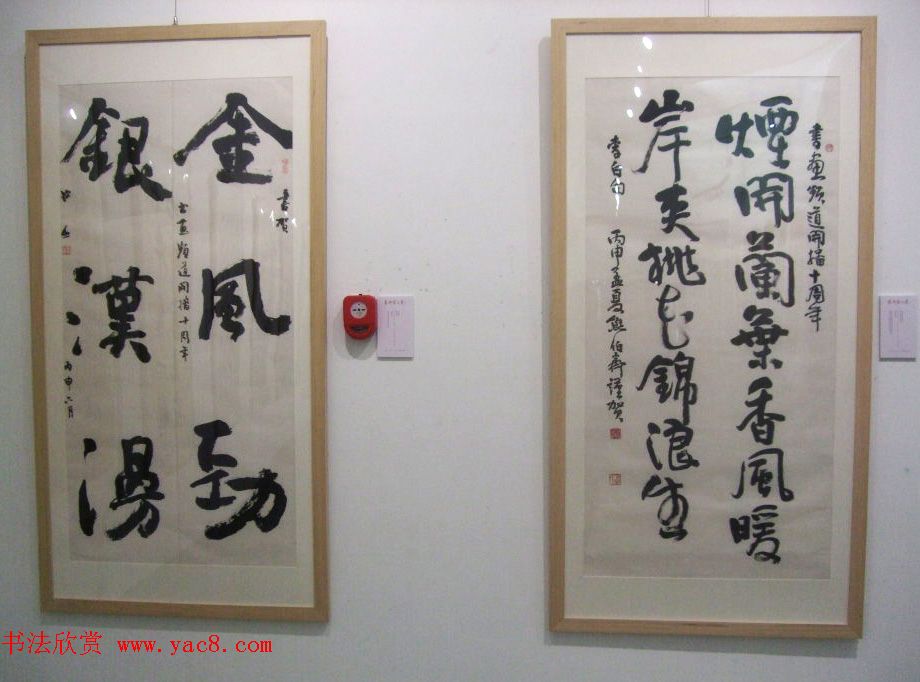 書画頻道開播十周年
煙開蘭葉香風暖
岸夾桃花錦浪生
李白句
丙申孟夏熊伯齊謹贺
書贺
金風勁
書画頻道開播十周年
銀漢湯
丙申六月
书法欣赏 www.yac8.com